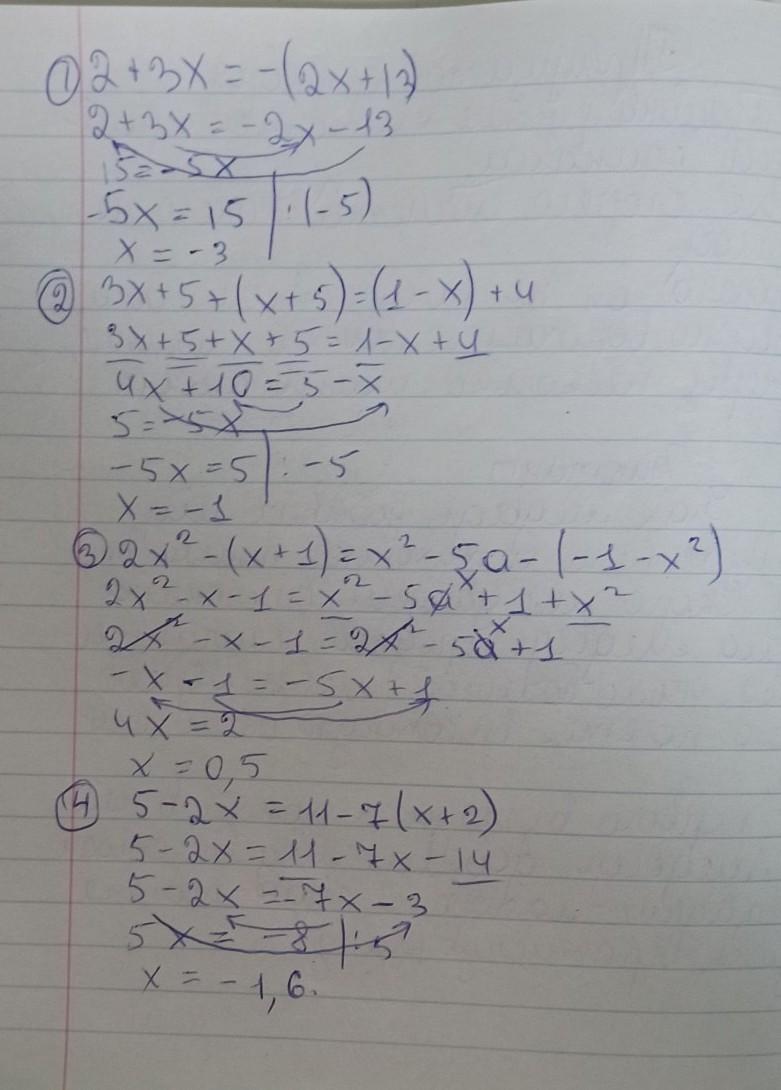 ① 2+3x = -(2x+13)
2+3x = -2x-13
15=-5x
-5x = 15 | : (-5)
x = -3
② 3x+5+(x+5)=(1-x)+4
3x+5+x+5=1-x+4
4x+10=5-x
5=-5x
-5x=5 | : -5
x = -1
③ 2x²-(x+1)=x²-5a-(-1-x²)
2x²-x-1=x²-5x+1+x²
2x²-x-1=2x²-5x+1
-x-1=-5x+1
4x=2
x=0,5
④ 5-2x=11-7(x+2)
5-2x=11-7x-14
5-2x=-7x-3
5x=-8 | : 5
x=-1,6.